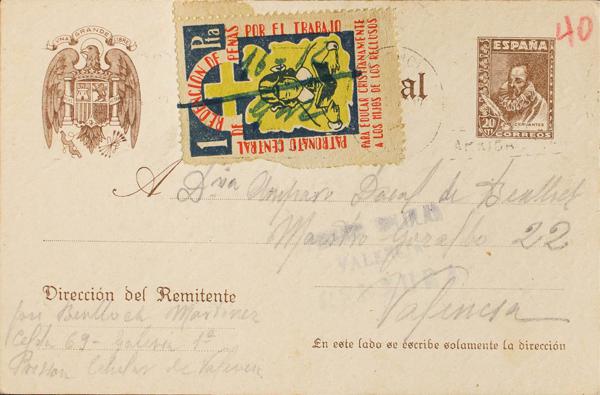 UNA GRANDE LIBRE
1 Pta
REDENCIÓN DE PENAS POR EL TRABAJO
PATRONATO CENTRAL DE
PARA EDUCAR CRISTIANAMENTE
A LOS HIJOS DE LOS RECLUSOS
al
ESPAÑA
CERVANTES
20 CTS
CORREOS
40
A Dña Amparo Dasal de Benlloch
Maestro Gozalbo 22
VALENCIA
Valencia
Dirección del Remitente
José Benlloch Martinez
Celda 69 - Galeria 1ª
Prision Celular de Valencia
En este lado se escribe solamente la dirección